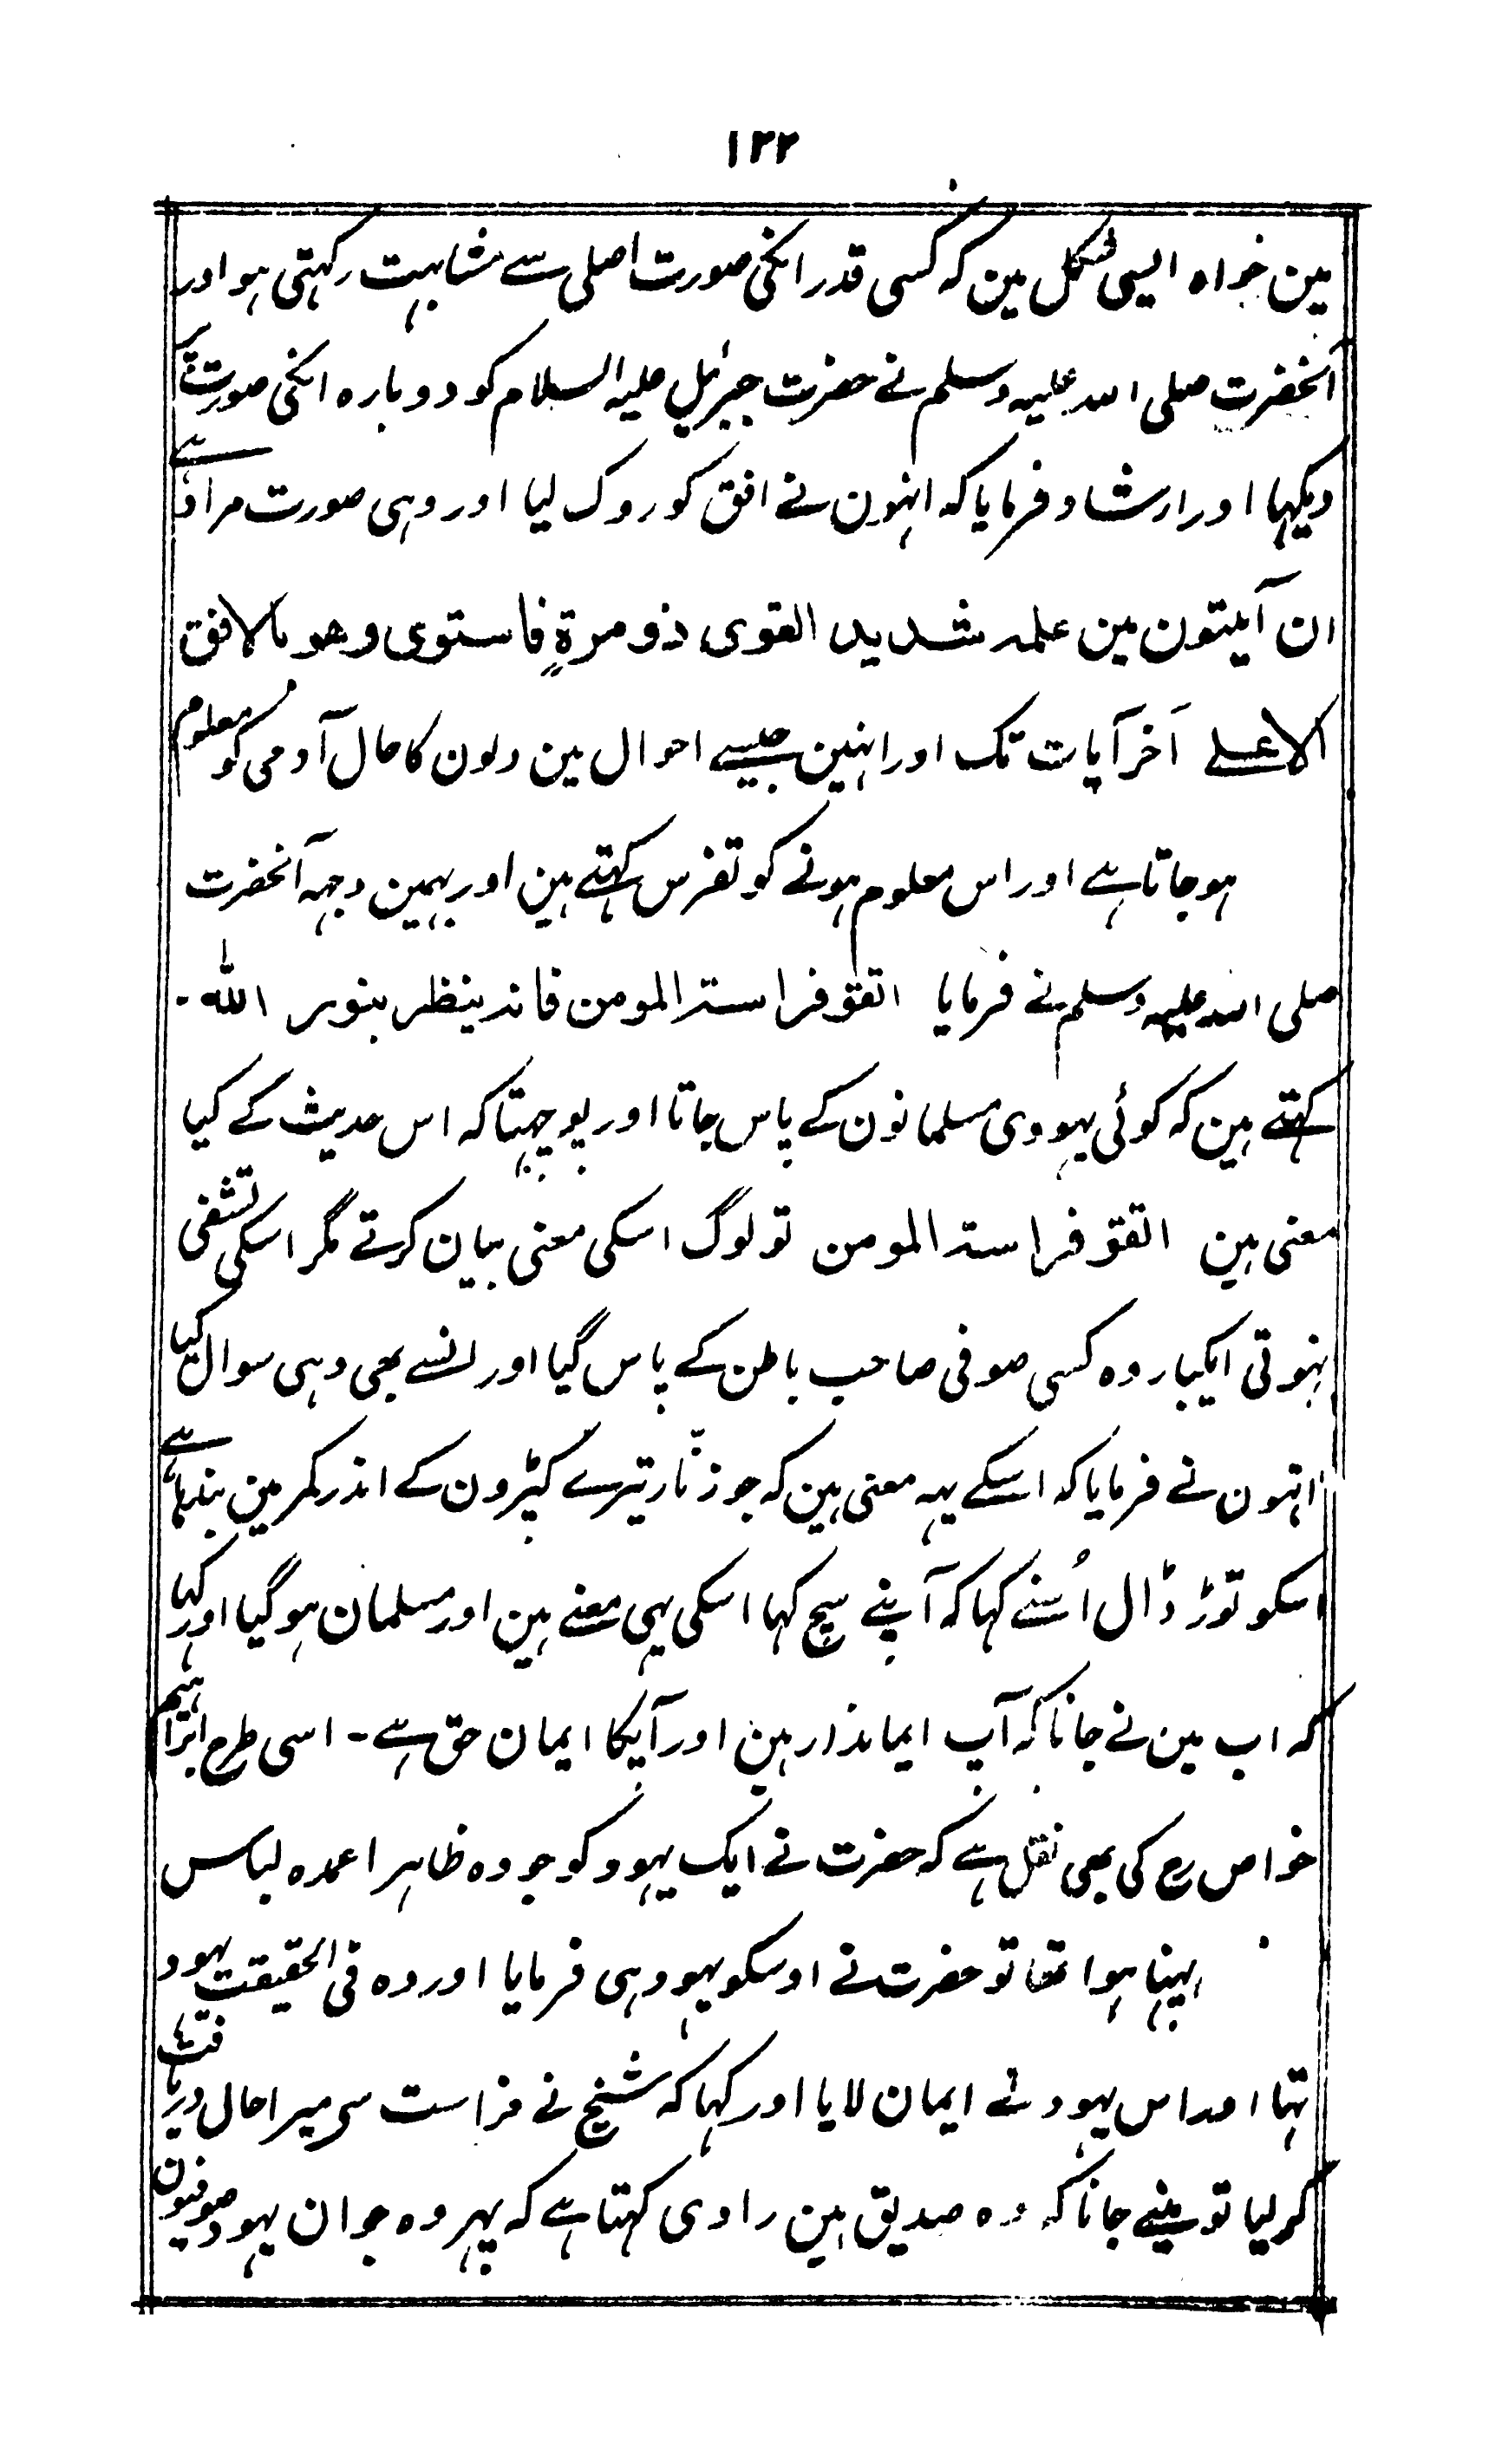 ۱۲۲
مین خواہ ایسی شکل مین کہ کسی قدر انکی صورت اصلی سے مشابہت رکہتی ہو اور
آنحضرت صلی اللہ علیہ وسلم نے حضرت جبرئیل علیہ السلام کو دوبارہ انکی صورت
دیکہا اور ارشاد فرمایا کہ انہون نے افق کو روک لیا اور وہی صورت مراد ہے
ان آیتون مین علمہ شدید القوی ذو مرۃٍ فاستوی وھو بالافق
الاعلے آخر آیات تک اور انہین جیسے احوال مین دلون کا حال آدمی کو معلوم
ہو جاتا ہے اور اس معلوم ہونے کو تفرس کہتے ہین اور بہمین وجہہ آنحضرت
صلی اللہ علیہ وسلم نے فرمایا اتقو فراستہ المومن فانہ ینظر بنور اللہ ۔
کہتے ہین کہ کوئی یہودی مسلمانون کے پاس جاتا اور پوچہتا کہ اس حدیث کے کیا
معنی ہین اتقو فراستہ المومن تو لوگ اسکی معنی بیان کرتے مگر اسکی تشفی
نہوتی ایکبار وہ کسی صوفی صاحب باطن کے پاس گیا اور انسے بھی وہی سوال کیا
انہون نے فرمایا کہ اسکے یہہ معنی ہین کہ جو زنّار تیرے کپڑون کے اندر کمر مین بندہا ہے
اسکو توڑ ڈال اُسنے کہا کہ آپنے سچ کہا اسکی یہی معنے ہین اور مسلمان ہو گیا اور کہا
کہ اب مین نے جانا کہ آپ ایماندار ہین اور آپکا ایمان حق ہے ۔ اسی طرح ابراہیم
خواص رح کی بھی نقل ہے کہ حضرت نے ایک یہود کو جو وہ ظاہرا عمدہ لباس
پہنا ہوا تھا تو حضرت نے اوسکو یہود ہی فرمایا اور وہ فی الحقیقت یہود
تہا اور اس یہود نے ایمان لایا اور کہا کہ شیخ نے فراست سی میرا حال دریافت
کر لیا تو مینے جانا کہ وہ صدیق ہین راوی کہتا ہے کہ پہر وہ جوان یہود صوفیون